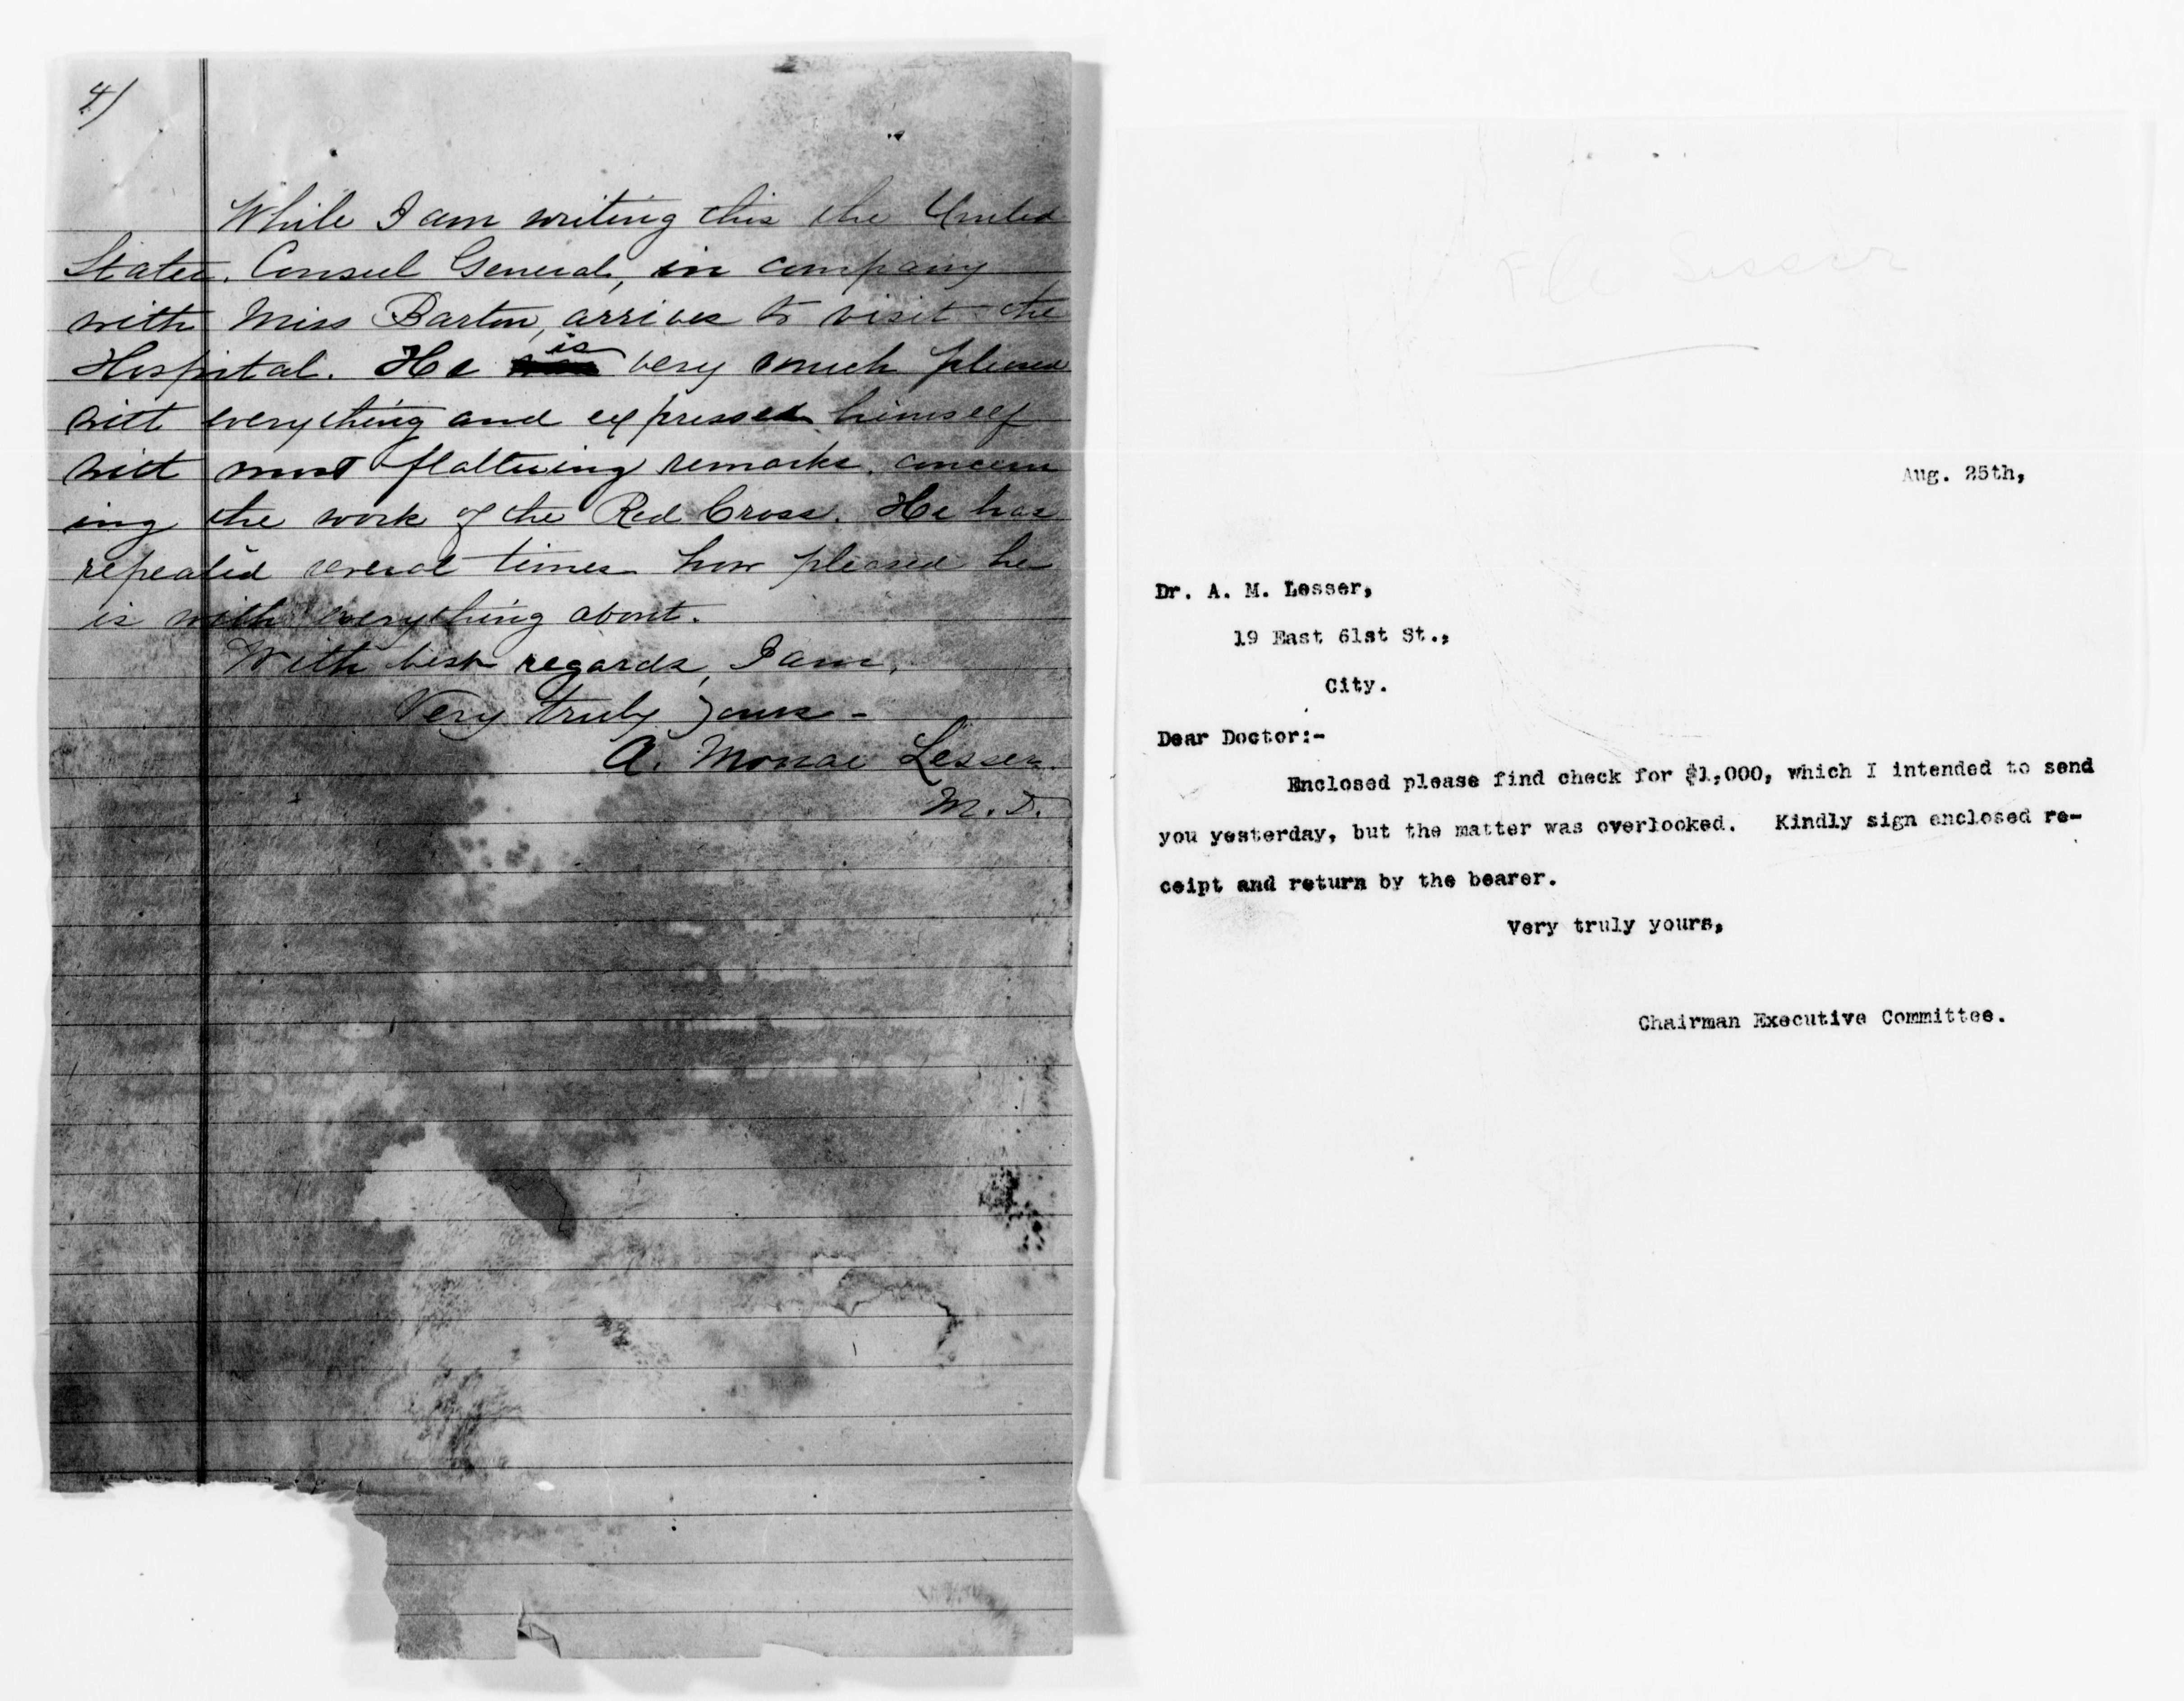 4)
While I am writing this the United
States. Consul General, in company
with Miss Barton, arrives to visit the
Hospital. He is very much pleased
with everything and expressed himself
with most flattering remarks, concern
ing the work of the Red Cross. He has
repeated several times how pleased he
is with everything about.
With best regards, I am,
Very truly yours -
A. Monae Lesser.
M. D.
File Lesser
Aug. 25th,
Dr. A. M. Lesser,
19 East 61st St.,
City.
Dear Doctor:-
Enclosed please find check for $1,000, which I intended to send
you yesterday, but the matter was overlooked. Kindly sign enclosed re-
ceipt and return by the bearer.
Very truly yours,
Chairman Executive Committee.